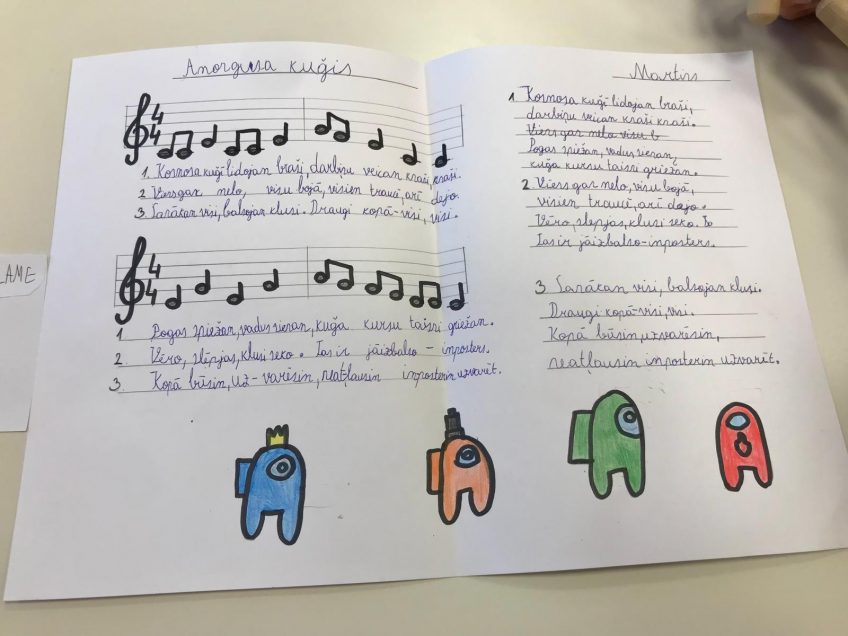 Anorgusa kuģis
4
4
1. Kosmosa kuģī lidojan braši, darbiņu veican kraši, kraši.
2 Viens gar nelo, visu bojā, visien traucē, arī dajo.
3 Sanākan visi, balsojan klusi. Draugi kopā-visi, visi.
4
4
1 Pogas spiežan, vadus vienan, kuģa kursu taisni griežan.
2 Vēro, slēpjas, klusi seko. Tas ir jāizbalso - inposters.
3 Kopā būsin, uz-varēsin, neatļausin inposterin uzvarēt.
Martins
1 Kosmosa kuģī lidojan braši,
darbiņu veican kraši kraši.
Viens gar nelo visu b
Pogas spiežan, vadus vienan,
kuģa kursu taisni griežan.
2. Viens gar nelo, visu bojā,
visien traucē, arī dajo.
Vēro, slepjas, klusi seko. To
Tas ir jāizbalso-inposters.
3. Sanākan visi, balsojan klusi.
Draugi kopā-visi, visi.
Kopā būsin, uzvarēsin,
neatļausin inposterin uzvarēt.
LAME